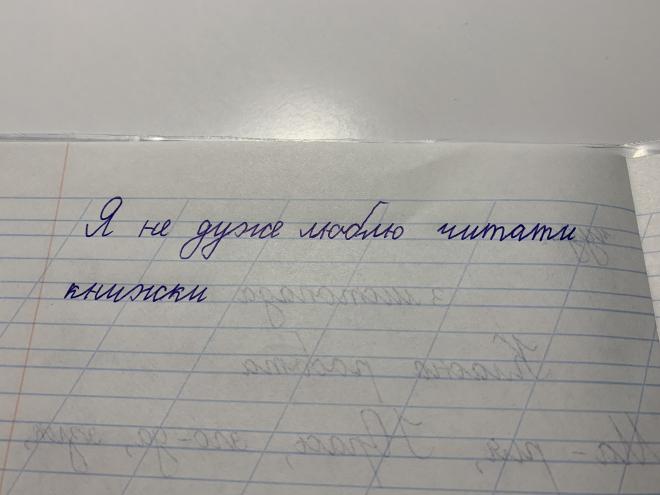 Я не дуже люблю читати
книжки